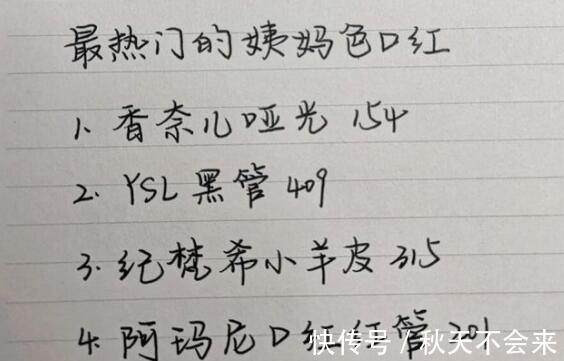 最热门的姨妈色口红
1、香奈儿哑光 154
2. YSL 黑管 409
3. 纪梵希小羊皮 315
4. 阿玛尼口红红管 201
快传号 / 秋天不会来